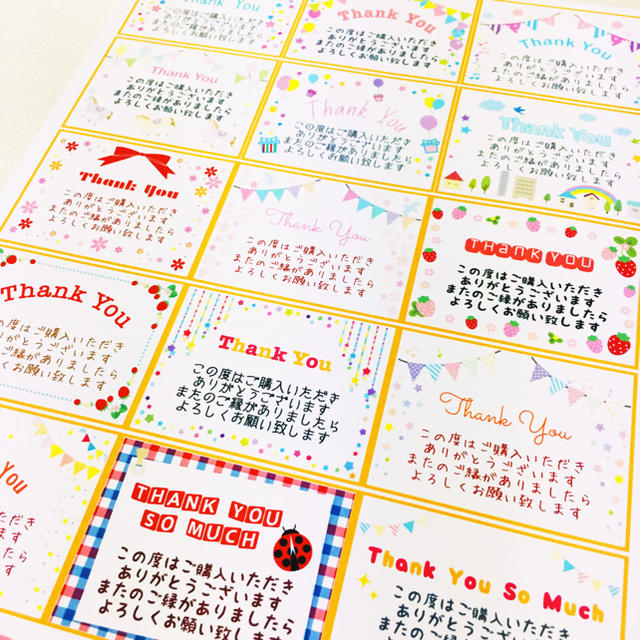 Thank You
この度はご購入いただき
ありがとうございます
またのご縁がありましたら
よろしくお願い致します
Thank You
この度はご購入いただき
ありがとうございます
またのご縁がありましたら
よろしくお願い致します
Thank You
この度はご購入いただき
ありがとうございます
またのご縁がありましたら
よろしくお願い致します
Thank You
この度はご購入いただき
ありがとうございます
またのご縁がありましたら
よろしくお願い致します
Thank You
この度はご購入いただき
ありがとうございます
またのご縁がありましたら
よろしくお願い致します
Thank You
この度はご購入いただき
ありがとうございます
またのご縁がありましたら
よろしくお願い致します
Thank You
この度はご購入いただき
ありがとうございます
またのご縁がありましたら
よろしくお願い致します
Thank You
この度はご購入いただき
ありがとうございます
またのご縁がありましたら
よろしくお願い致します
THANK YOU
この度はご購入いただき
ありがとうございます
またのご縁がありましたら
よろしくお願い致します
Thank You
の度はご購入いただき
りがとうございます
のご縁がありましたら
ろしくお願い致します
Thank You
この度はご購入いただき
ありがとうございます
またのご縁がありましたら
よろしくお願い致します
Thank You
この度はご購入いただき
ありがとうございます
またのご縁がありましたら
よろしくお願い致します
You
入いただき
ざいます
りましたら
致します
THANK YOU
SO MUCH
この度はご購入いただき
ありがとうございます
またのご縁がありましたら
よろしくお願い致します
Thank You So Much
この度はご購入いただき
ありがとうございます
またのご縁がありましたら